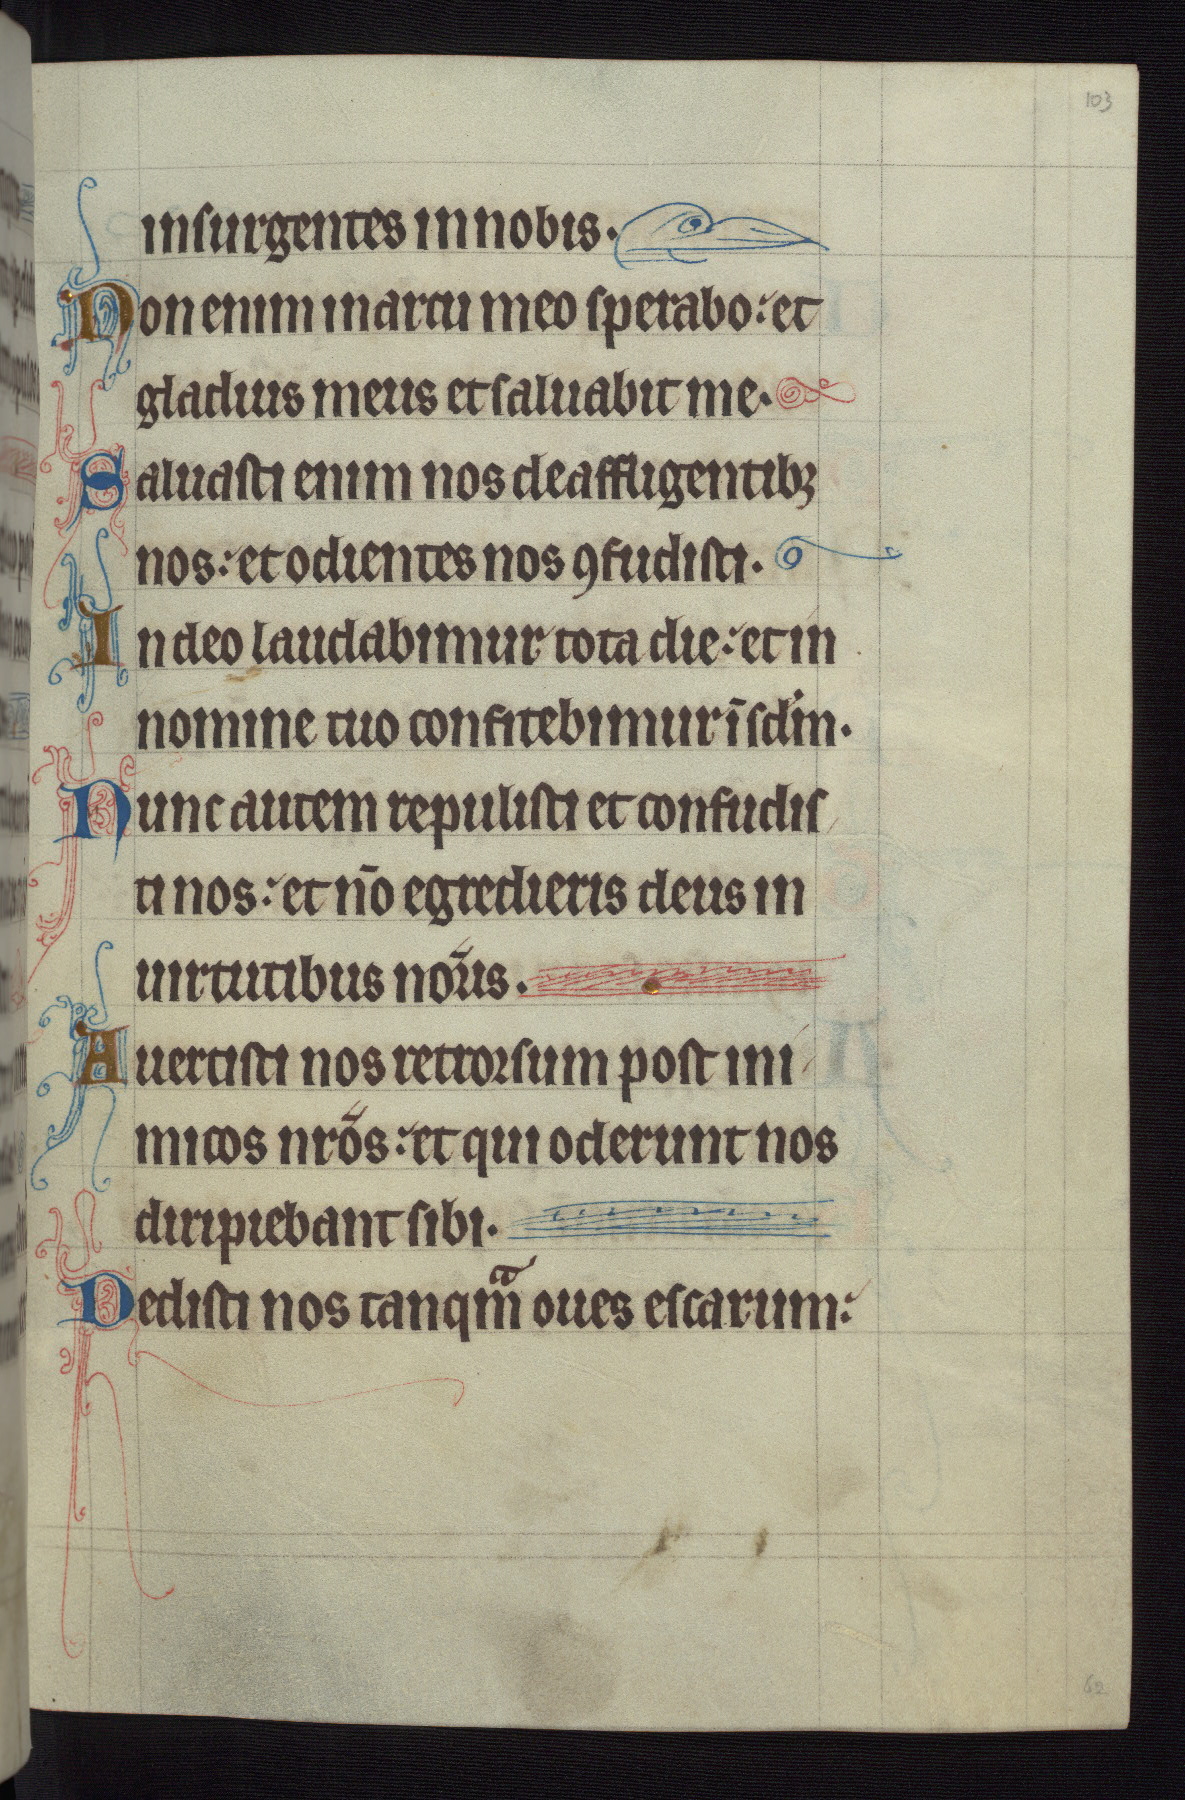 103
insurgentes in nobis.
Non enim in arcu meo sperabo: et
gladius meus et saluabit me.
Saluasti enim nos de affligentibꝫ
nos: et odientes nos ꝯfudisti.
In deo laudabimur tota die: et in
nomine tuo confitebimur ī scl̄m.
Nunc autem repulisti et confudis
ti nos: et nō egredieris deus in
uirtutibus nōus.
Auertisti nos retrorsum post ini
micos nrōs: et qui oderunt nos
diripiebant sibi.
Dedisti nos tanqᵃm oues escarum:
62